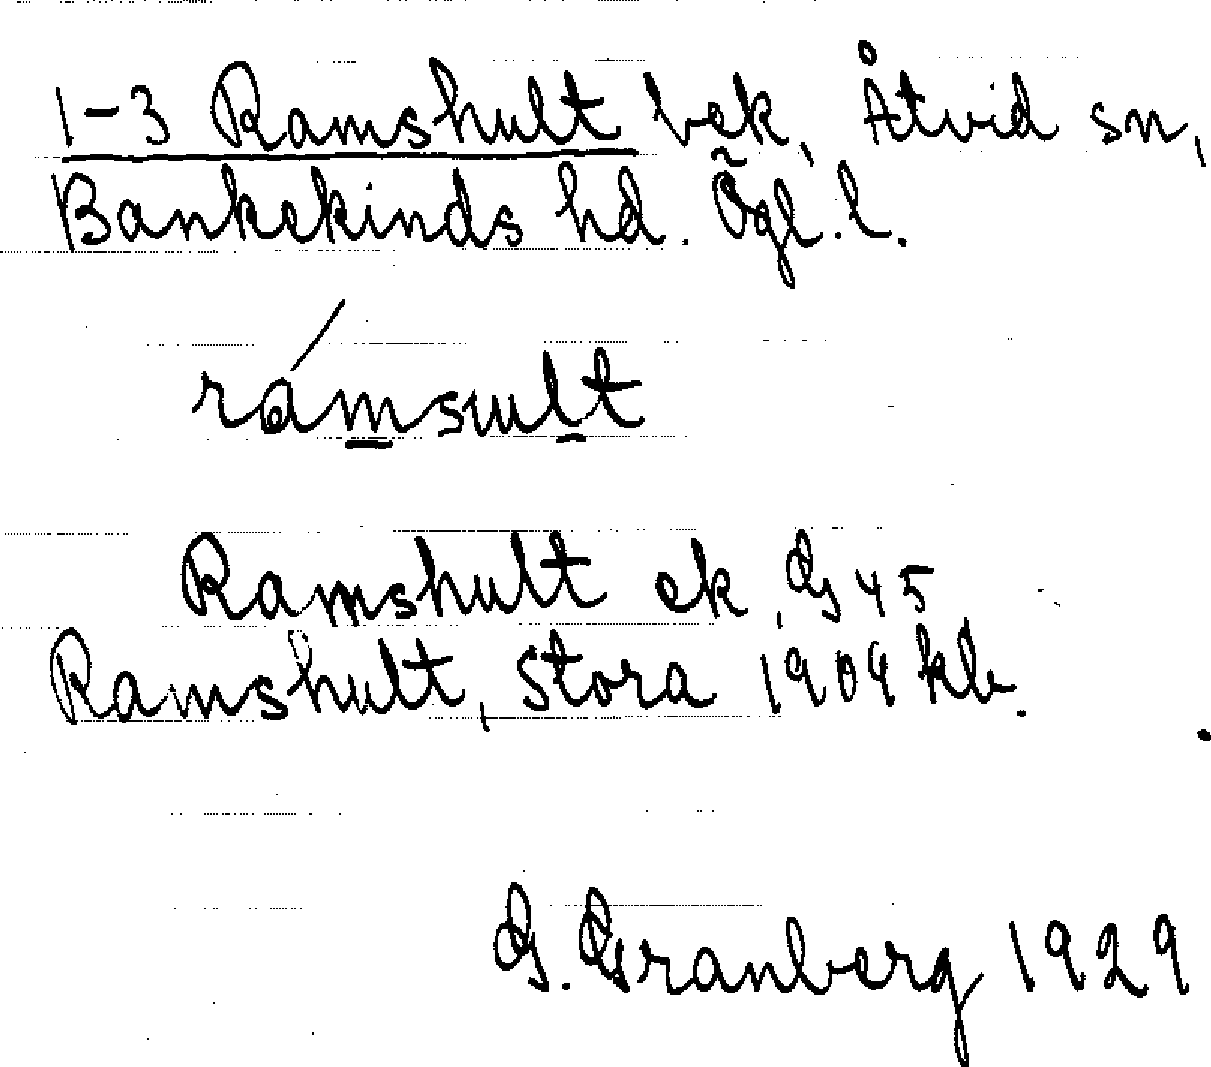 1-3 Ramshult bek, Åtvid sn,
Bankekinds hd. Ögl. l.
rámsult
Ramshult ek, GS 45
Ramshult, Stora 1909 kb.
G. Granberg 1929